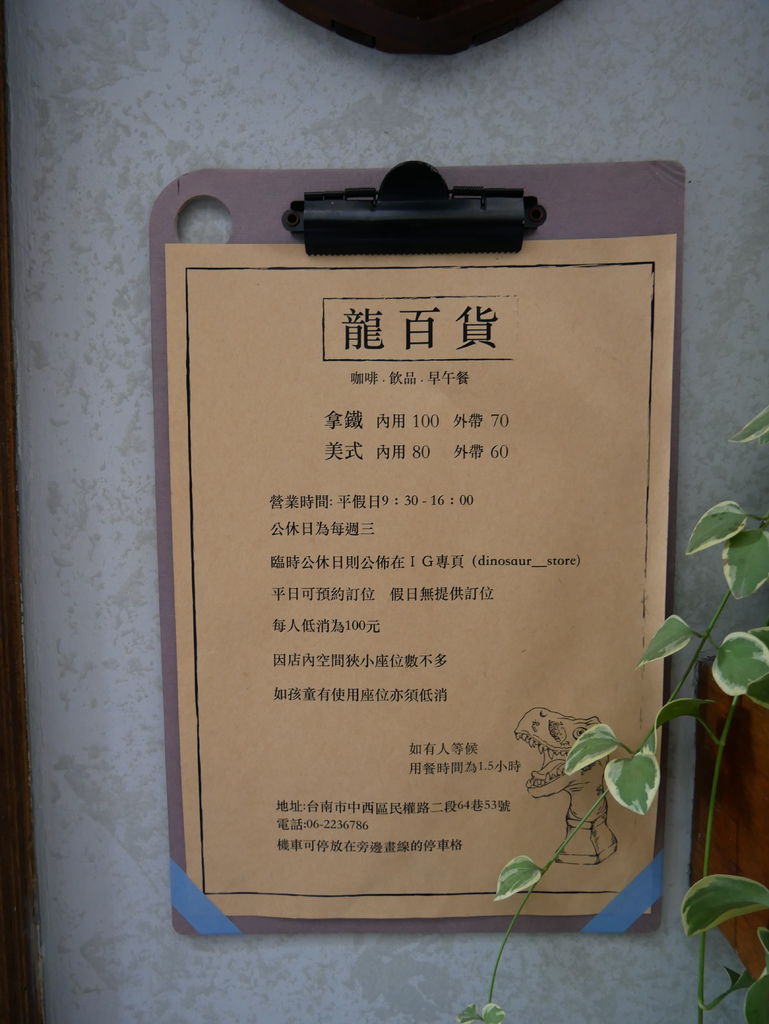 龍百貨
咖啡.飲品.早午餐
拿鐵 內用 100 外帶 70
美式 內用 80 外帶 60
營業時間: 平假日9：30 - 16：00
公休日為每週三
臨時公休日則公佈在ＩＧ專頁（dinosaur__store）
平日可預約訂位 假日無提供訂位
每人低消為100元
因店內空間狹小座位數不多
如孩童有使用座位亦須低消
如有人等候
用餐時間為1.5小時
地址:台南市中西區民權路二段64巷53號
電話:06-2236786
機車可停放在旁邊畫線的停車格